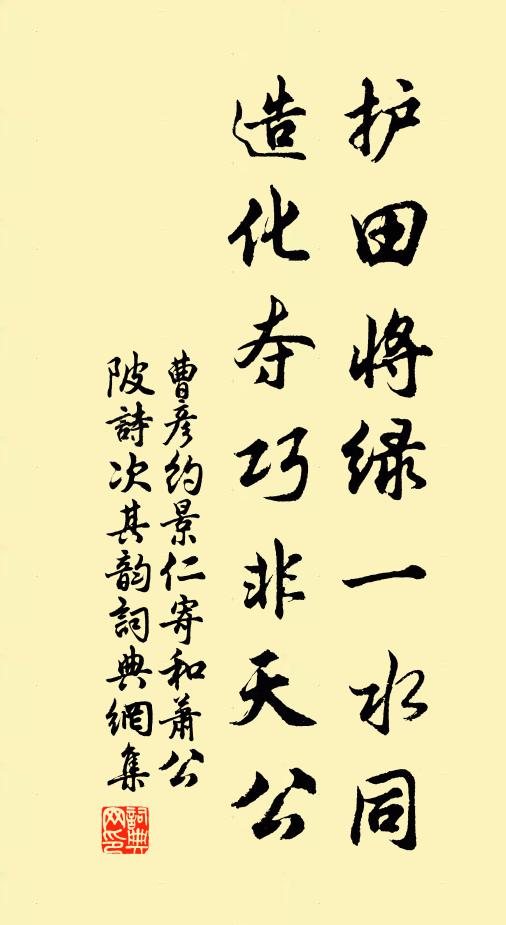 护田将绿一水同
造化夺巧非天公
曹彦约景仁寄和萧公
陂詩次其韵詞典網集
詞典网印